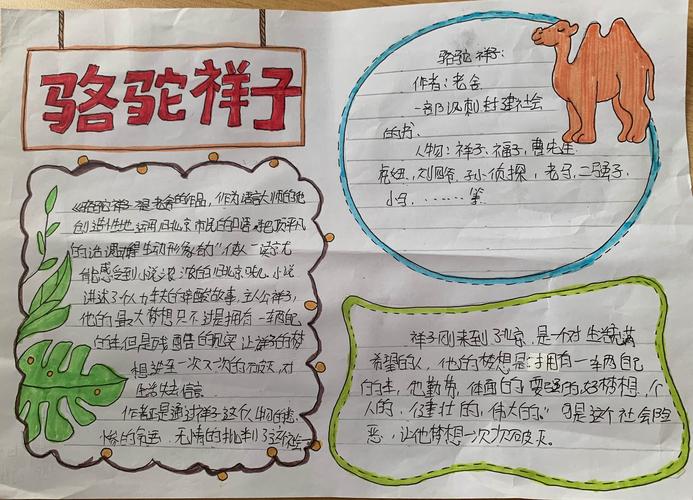 骆驼祥子
《骆驼祥子》是老舍的作品,作为语言大师的他
创造性地运用旧北京市民的口语,把平凡
的话调理得生动形象的
能感受到小说浓浓的旧北京味儿。小说
讲述了个人力车夫的辛酸故事,主人公祥子,
他的最大梦想只不过是拥有一车两自己
的车,但是残酷的现实让祥子的梦
想破一次又一次的
生活失去信念
作者正是通过祥子这个人物的悲
惨的命运,无情的批判了这个
骆驼祥子:
作者:老舍
一部讽刺封建社会
的书、
人物:祥子、福子,曹先生
虎妞、刘四爷、孙小侦探,老马,二强子,
小马,……等
祥子刚来到北京,是一个对生活充满
希望的人,他的梦想是拥有一车两自己
的车,他勤劳,体面的,要强的,好梦想,个
人的,健壮的,伟大的。可是这个社会险
恶,让他梦想一次次破灭。